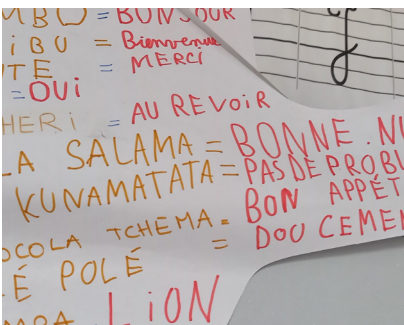 MBO = BONJOUR
IBU = Bienvenue
TE = MERCI
= OUi
HERi = AU REVOiR
LA SALAMA = BONNE. NU
KUNAMATATA = PAS DE PROBL
BON APPÉT
OCOLA TCHEMA =
É POLÉ = DOUCEMEN
LiON